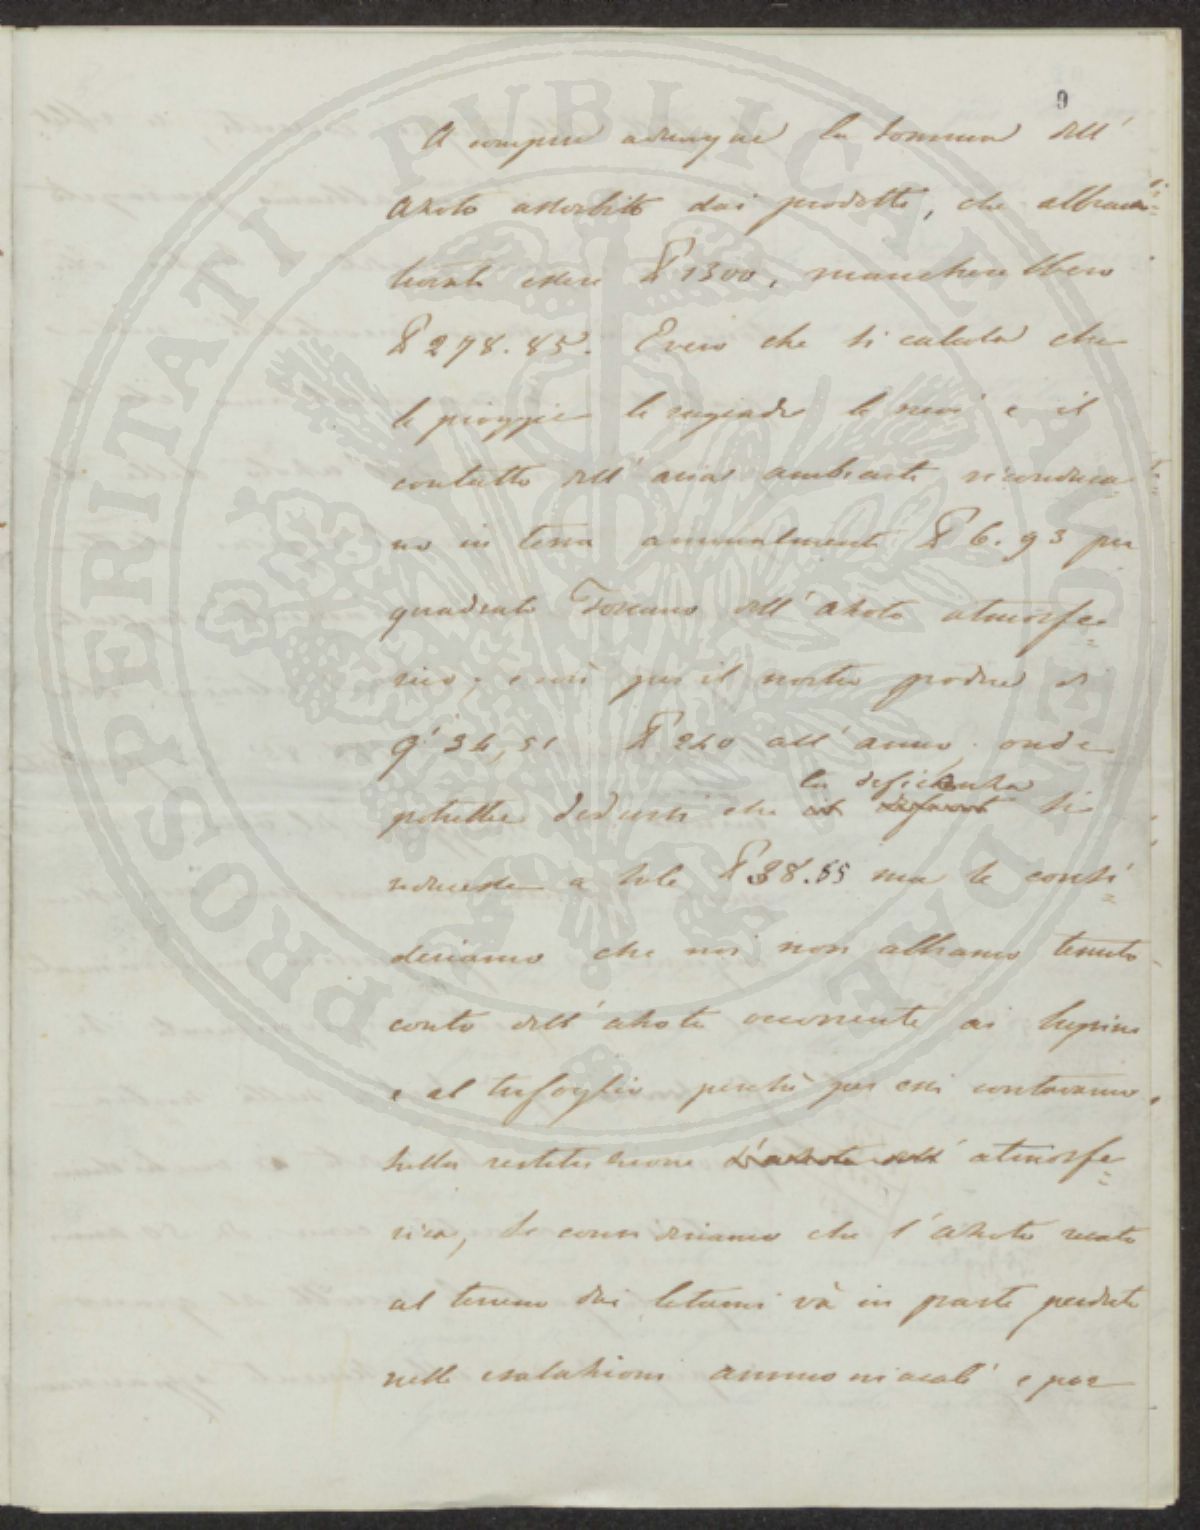 9
A compire adunque la somma dell'
azoto assorbito dai prodotti, che abbiam
trovato essere ℔ 1300, mancherebbero
℔ 278.85. È vero che si calcola che
le pioggie le rugiade le nevi e il
contatto dell'aria ambiente riconduca=
no in terra annualmente ℔ 6.93 per
quadrato Toscano dell'azoto atmosfe=
rico, e così per il nostro podere di
q.i 34,51 ℔ 240 all'anno. onde
la deficienza
potrebbe dedursi che si
riducesse a sole ℔ 38.85 ma se consi=
deriamo che noi non abbiamo tenuto
conto dell'azoto occorrente ai lupini
e al trifoglio perchè per essi contavamo
sulla restituzione l'azoto dell' atmosfe=
rica, se consideriamo che l'azoto recato
al terreno dai letami và in parte perduto
nelle esalazioni ammoniacali e per
PROSPERITATI PUBLICAE AUGENDAE